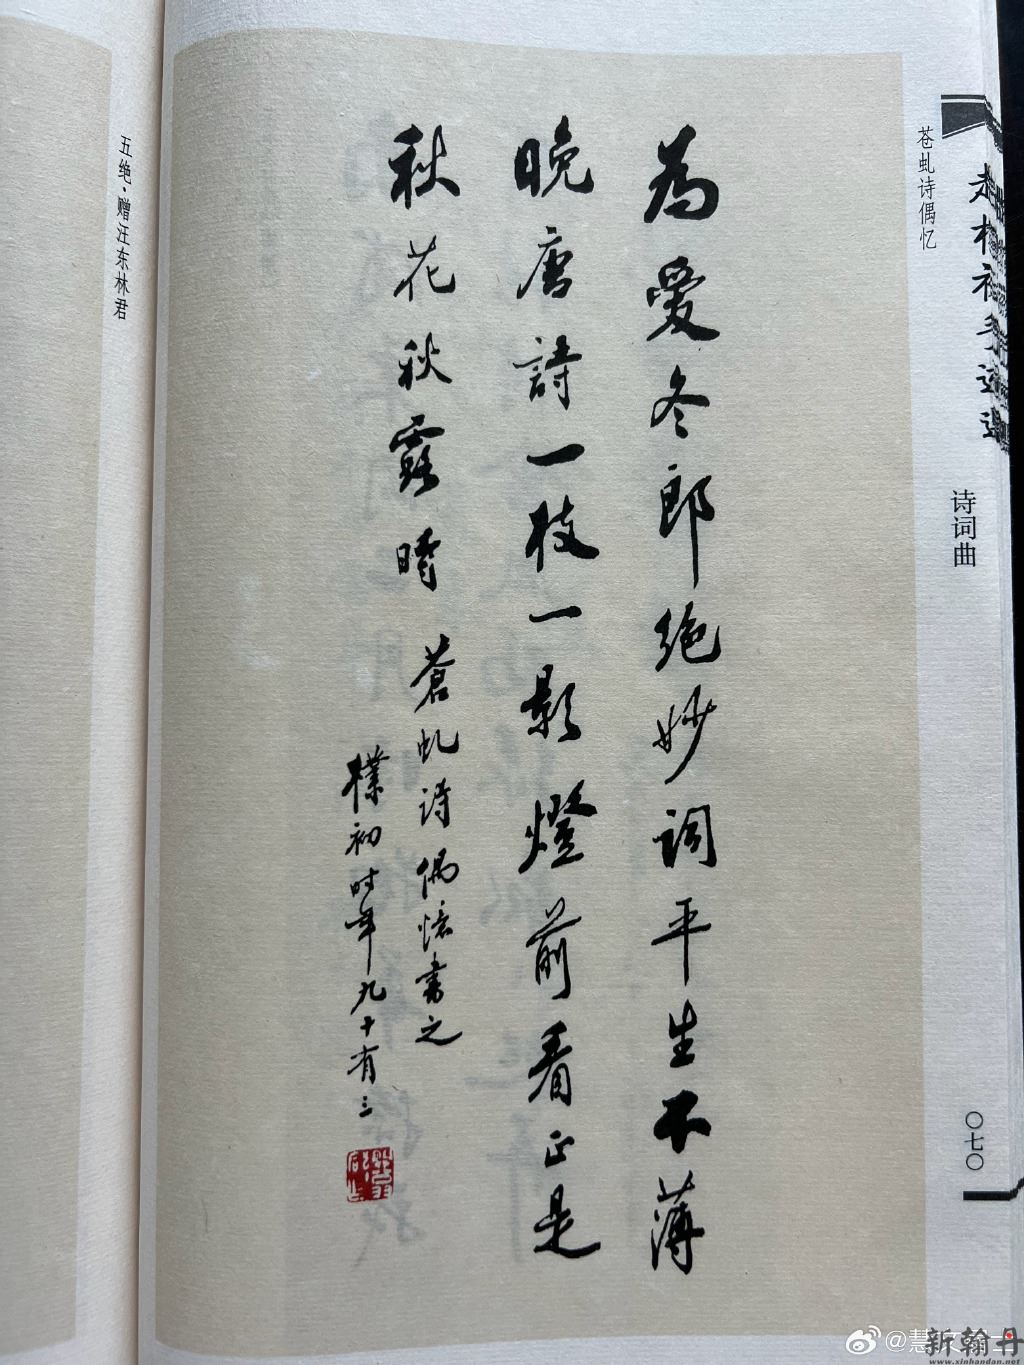 诗词曲
〇七〇
苍虬诗偶忆
為愛冬郎絶妙詞平生不薄
晚唐詩一枝一影燈前看正是
秋花秋露時
蒼虬詩偶憶書之
樸初时年九十有三
五绝·赠汪东林君
新翰丹
www.xinhandan.net